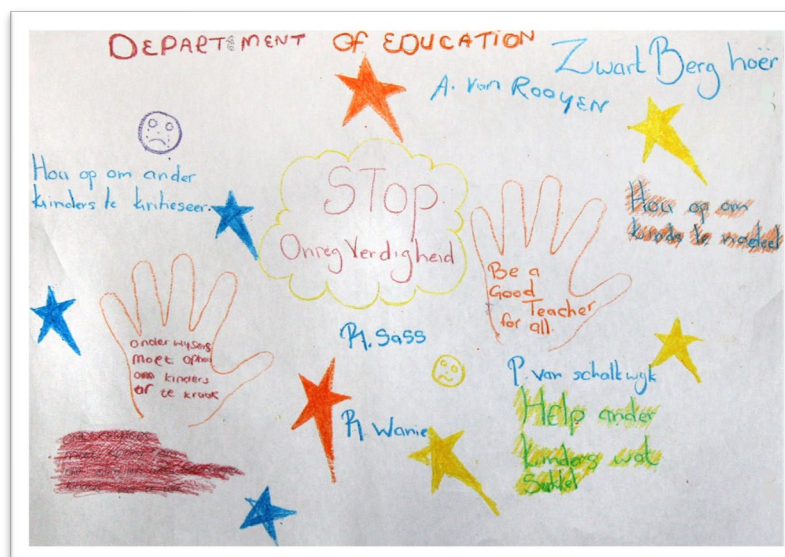 DEPARTEMENT OF EDUCATION
Zwart Berg hoër
A. Van ROOYEN
Hou op om ander
kinders te kritiseer.
STOP
Onreg Verdigheid
Hou op om
kinds te nadeel
Be a
Good
Teacher
for all.
onderwysers
moet ophou
om kinders
af te kraak
R. Sass
P. van schalkwyk
R. Wanie
Help ander
kinders wat
Sukkel